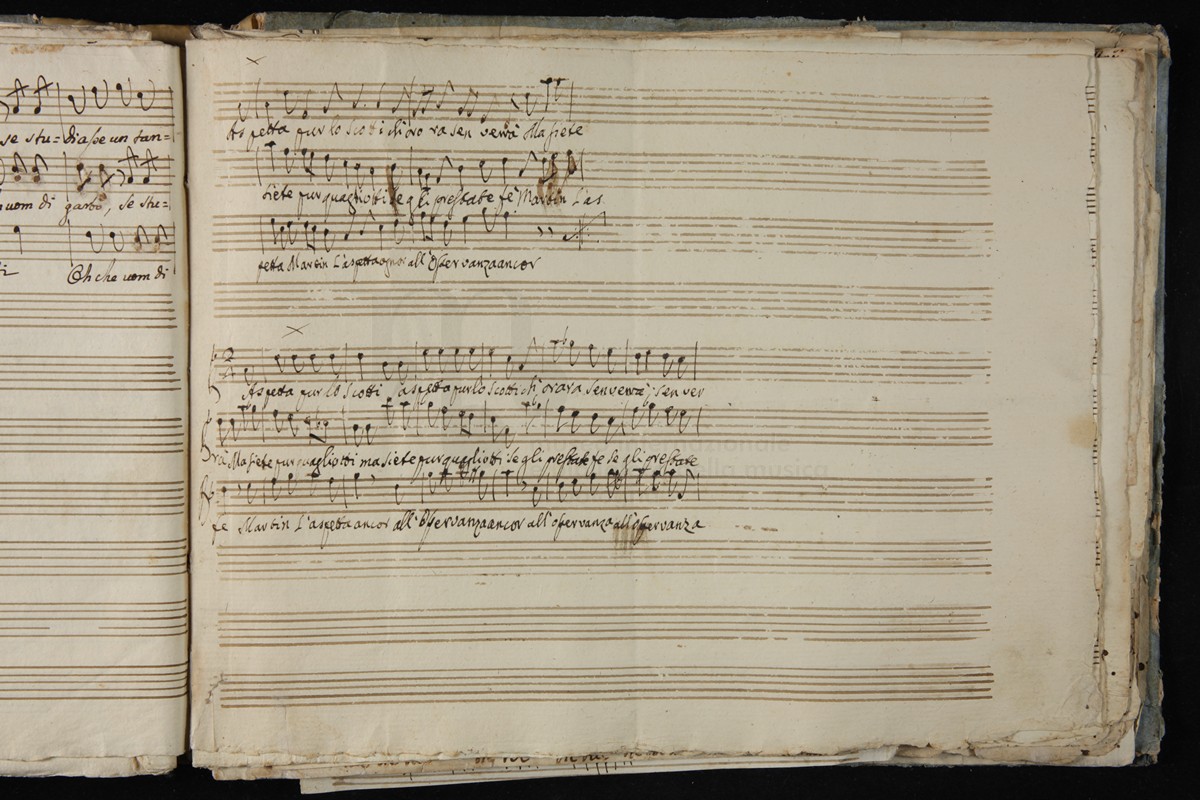 se stu= diasse un tan=
uom di garbo, se stu=
Oh che uom di
Aspetta pur lo Scotti ch'oro ra sen verrà Ma siete
siete pur quagliotti se gli prestate fe Martin L'as
petta Martin L'aspetta ognor all'Osservanza ancor
Aspetta pur lo Scotti aspetta pur lo Scotti ch' orara sen verrà; sen ver
rà Ma siete pur quagliotti ma siete pur quagliotti se gli prestate fe se gli prestate
nazionale
della musica
fe Martin L'aspetta ancor all' Osservanza ancor all'osservanza all'osservanza